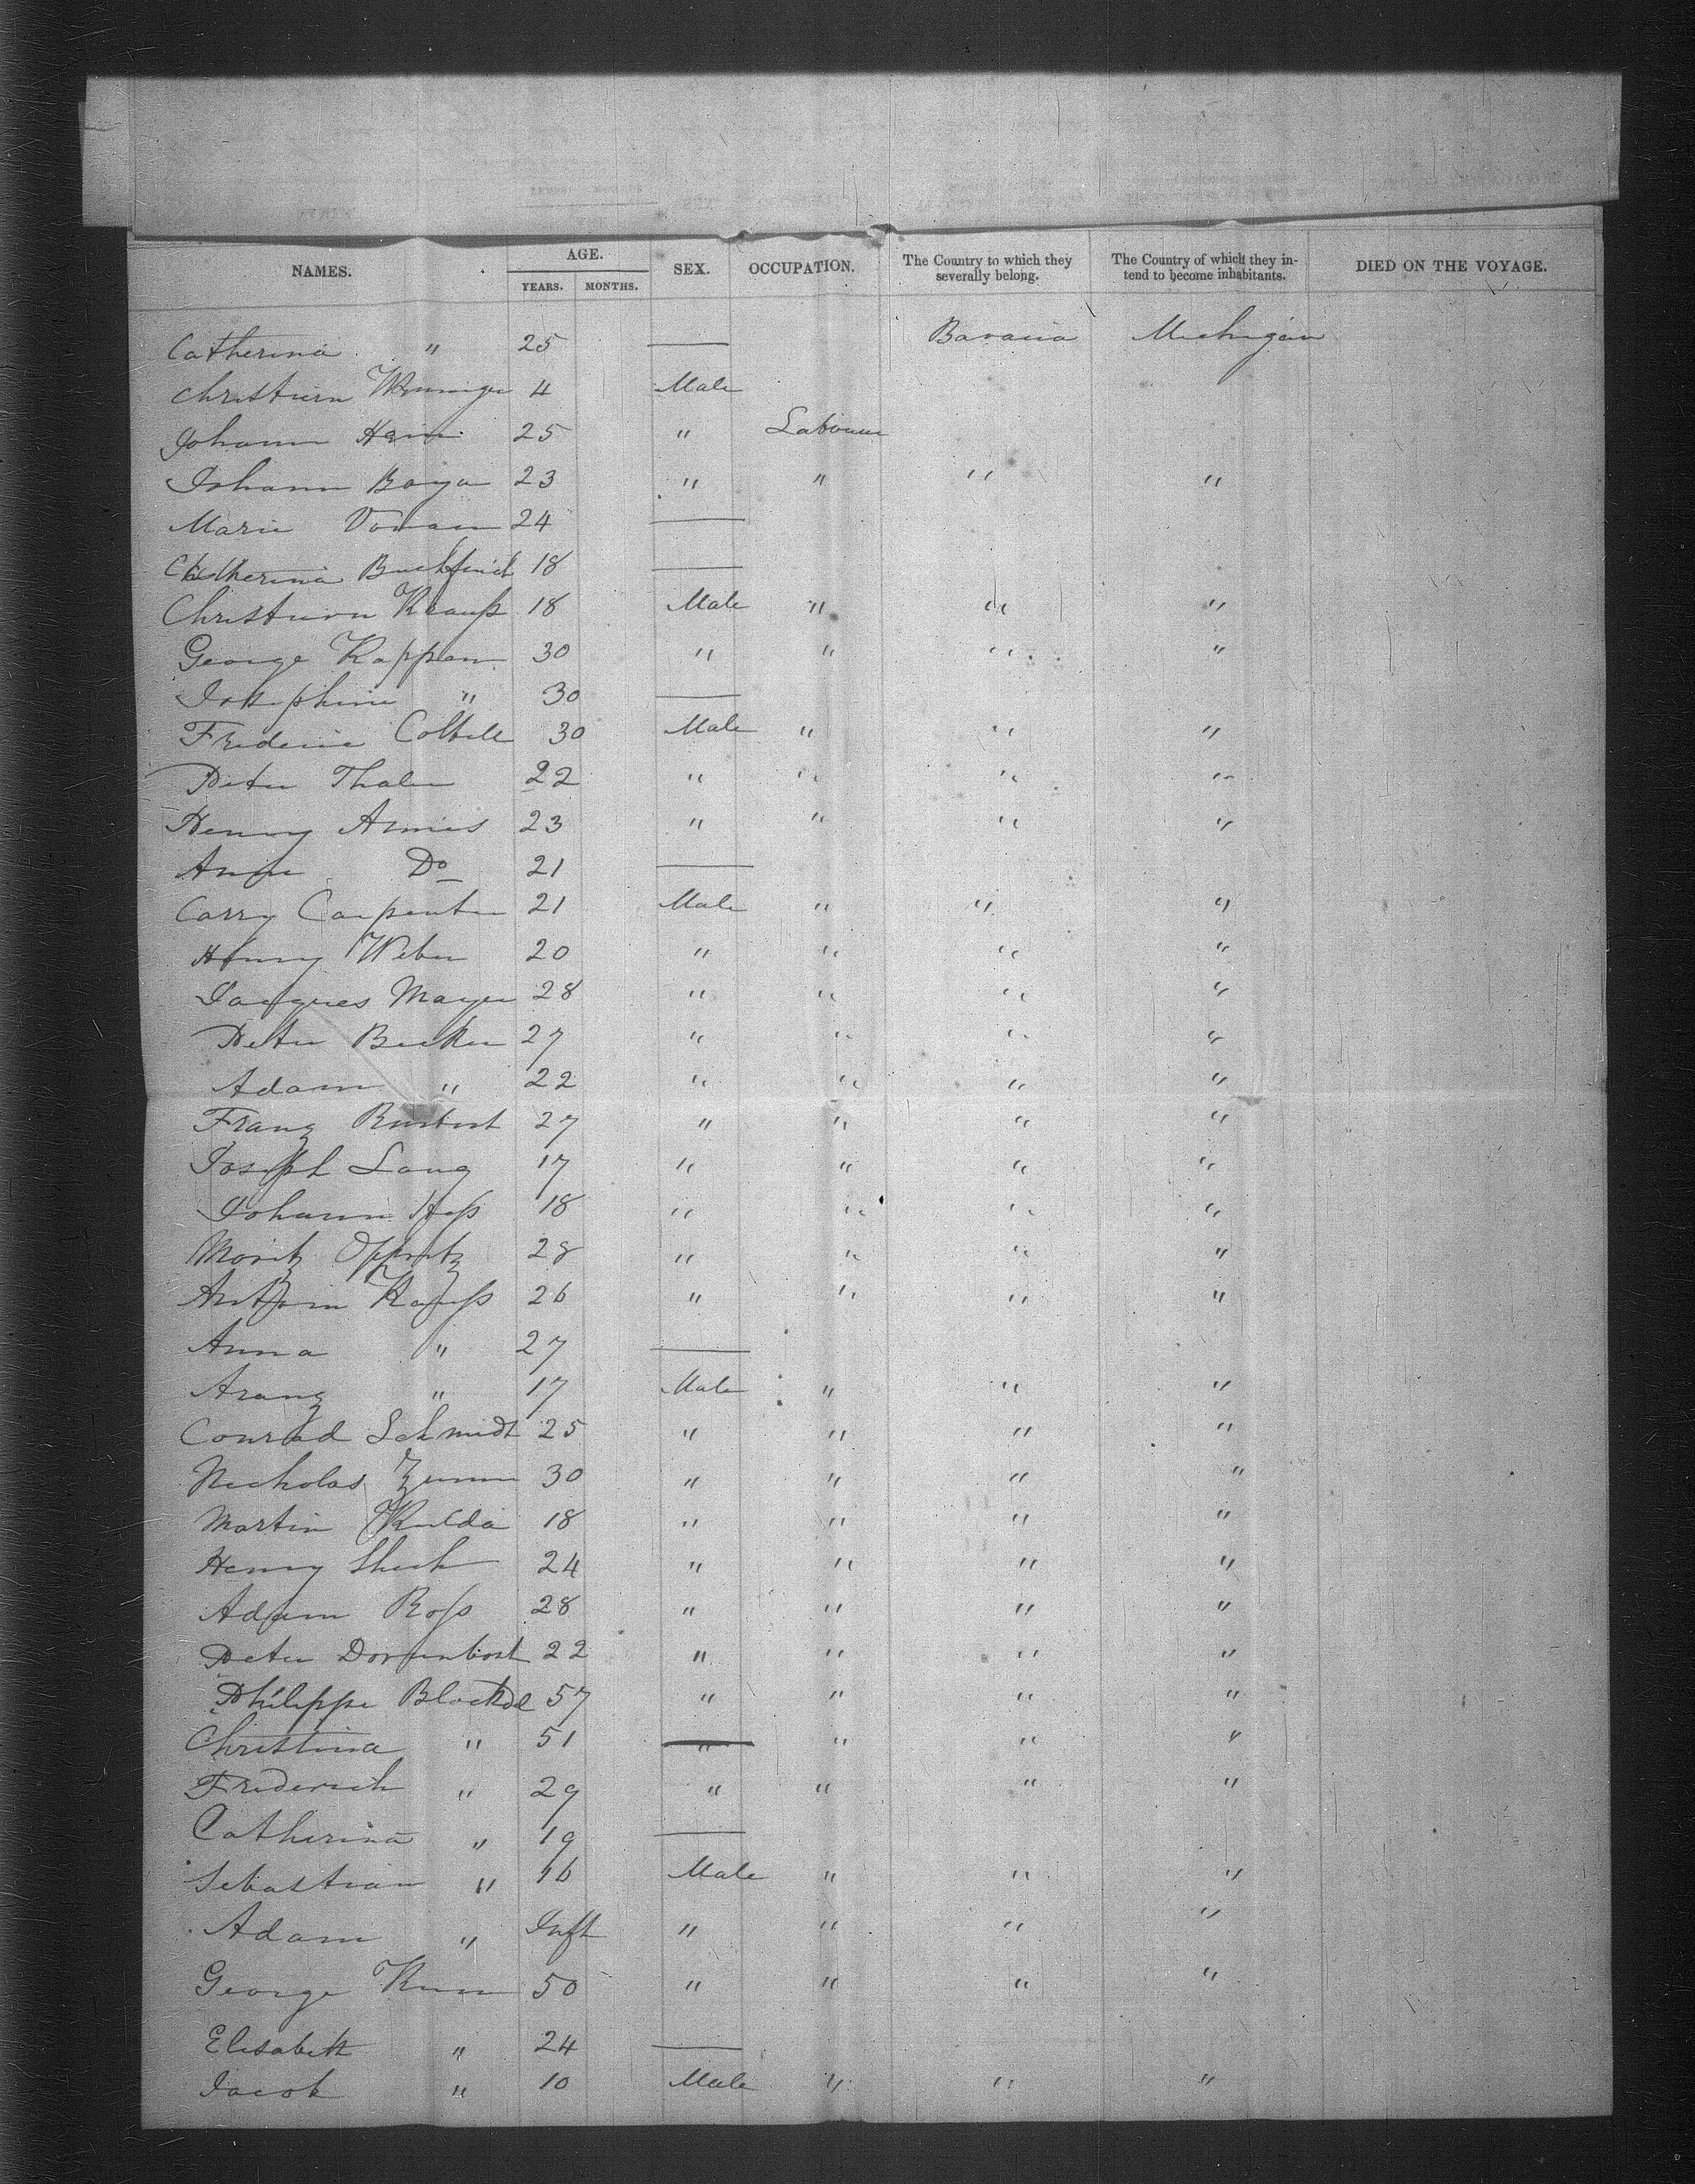 NAMES. AGE. YEARS. MONTHS. SEX. OCCUPATION. The Country to which they severally belong. The Country of which they intend to become inhabitants. DIED ON THE VOYAGE.
Catherina " 25 — Bavaria Michigan
Christian 4 Male
Johann 25 " Labourer
Johann 23 " " " "
Marie 24 —
Catherina 18 —
Christian Krauss 18 Male " " "
George Kappan 30 " " " "
Josephine " 30 —
Frederic Colbell 30 Male " " "
Peter Thaler 22 " " " "
Henry Armes 23 " " " "
Anna Do 21 —
Carry Carpenter 21 Male " " "
Henry Weber 20 " " " "
Jacques Mayer 28 " " " "
Peter Becker 27 " " " "
Adam " 22 " " " "
Franz 27 " " " "
Joseph Lang 17 " " " "
Johann Hess 18 " " " "
Moritz 28 " " " "
26 " " " "
Anna " 27 —
" 17 Male " " "
Conrad Schmidt 25 " " " "
Nicholas 30 " " " "
Martin Kulda 18 " " " "
Henry 24 " " " "
Adam Ross 28 " " " "
Peter 22 " " " "
Philippe 57 " " " "
Christina " 51 — " " "
Frederich " 29 " " " "
Catherina " 19 —
Sebastian " 16 Male " " "
Adam " Inft " " " "
George 50 " " " "
Elisabeth " 24 —
Jacob " 10 Male " " "